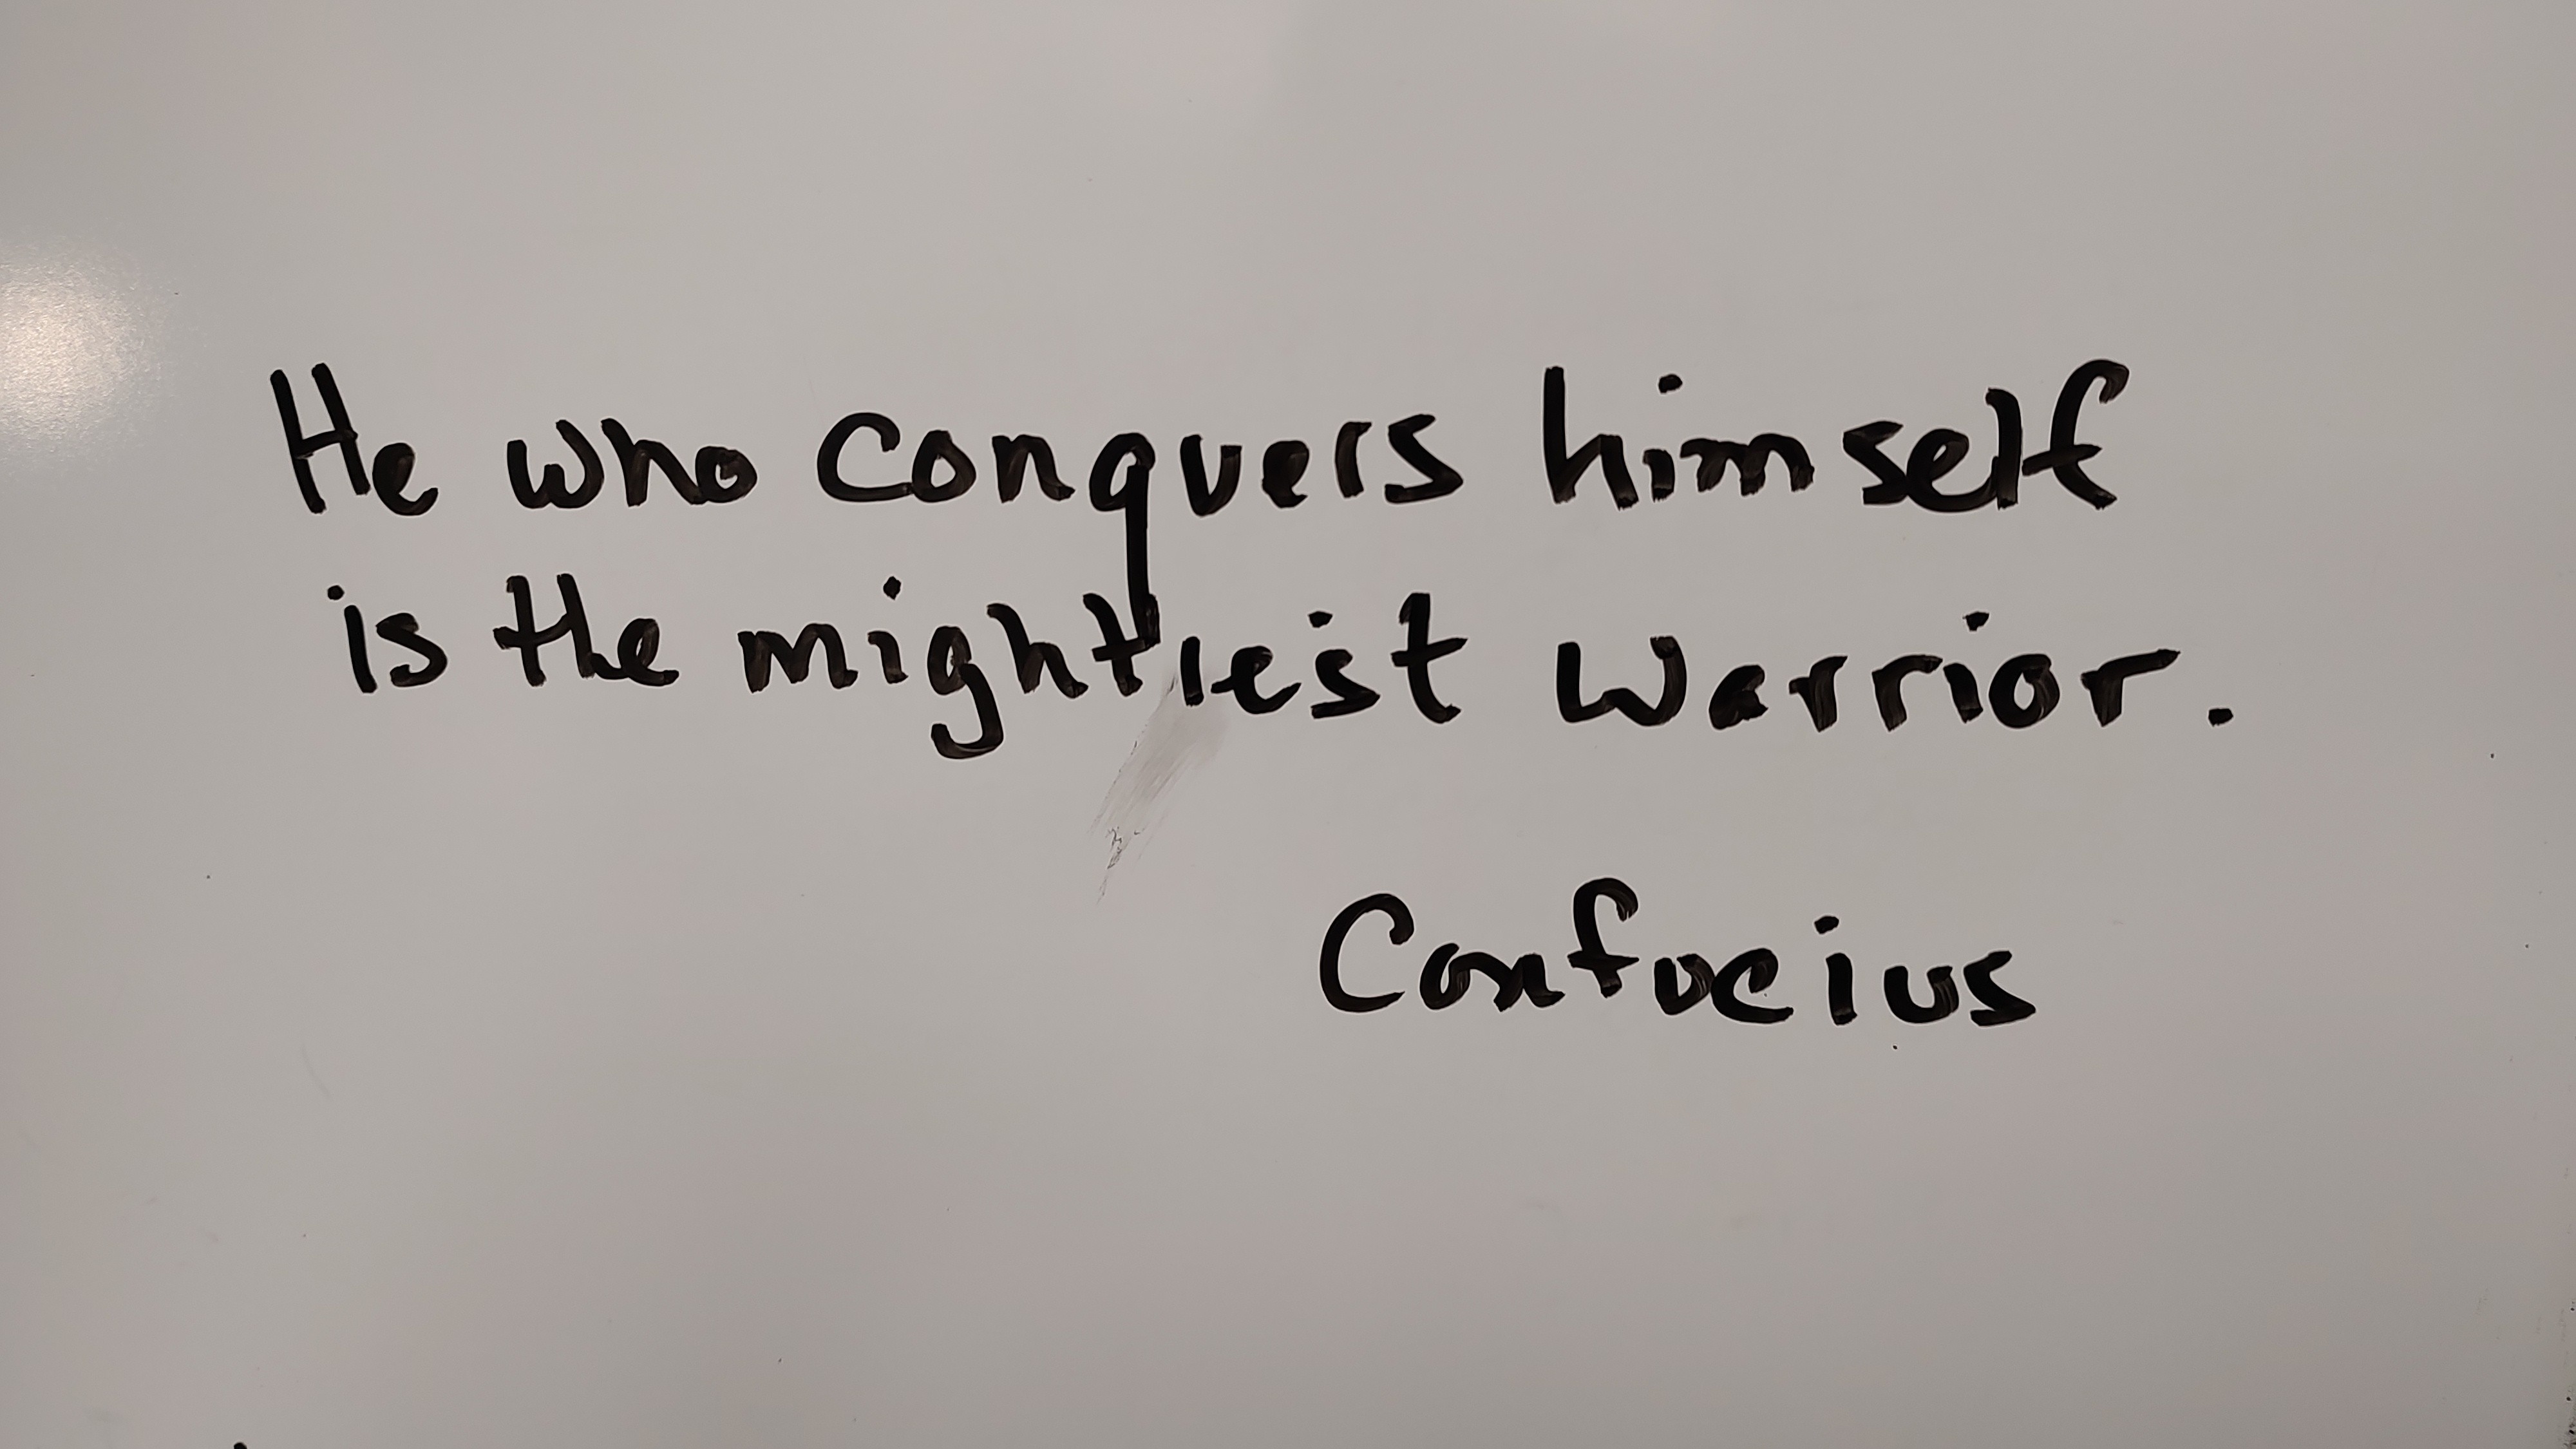 He who conquers himself
is the mightiest warrior.
Confucius